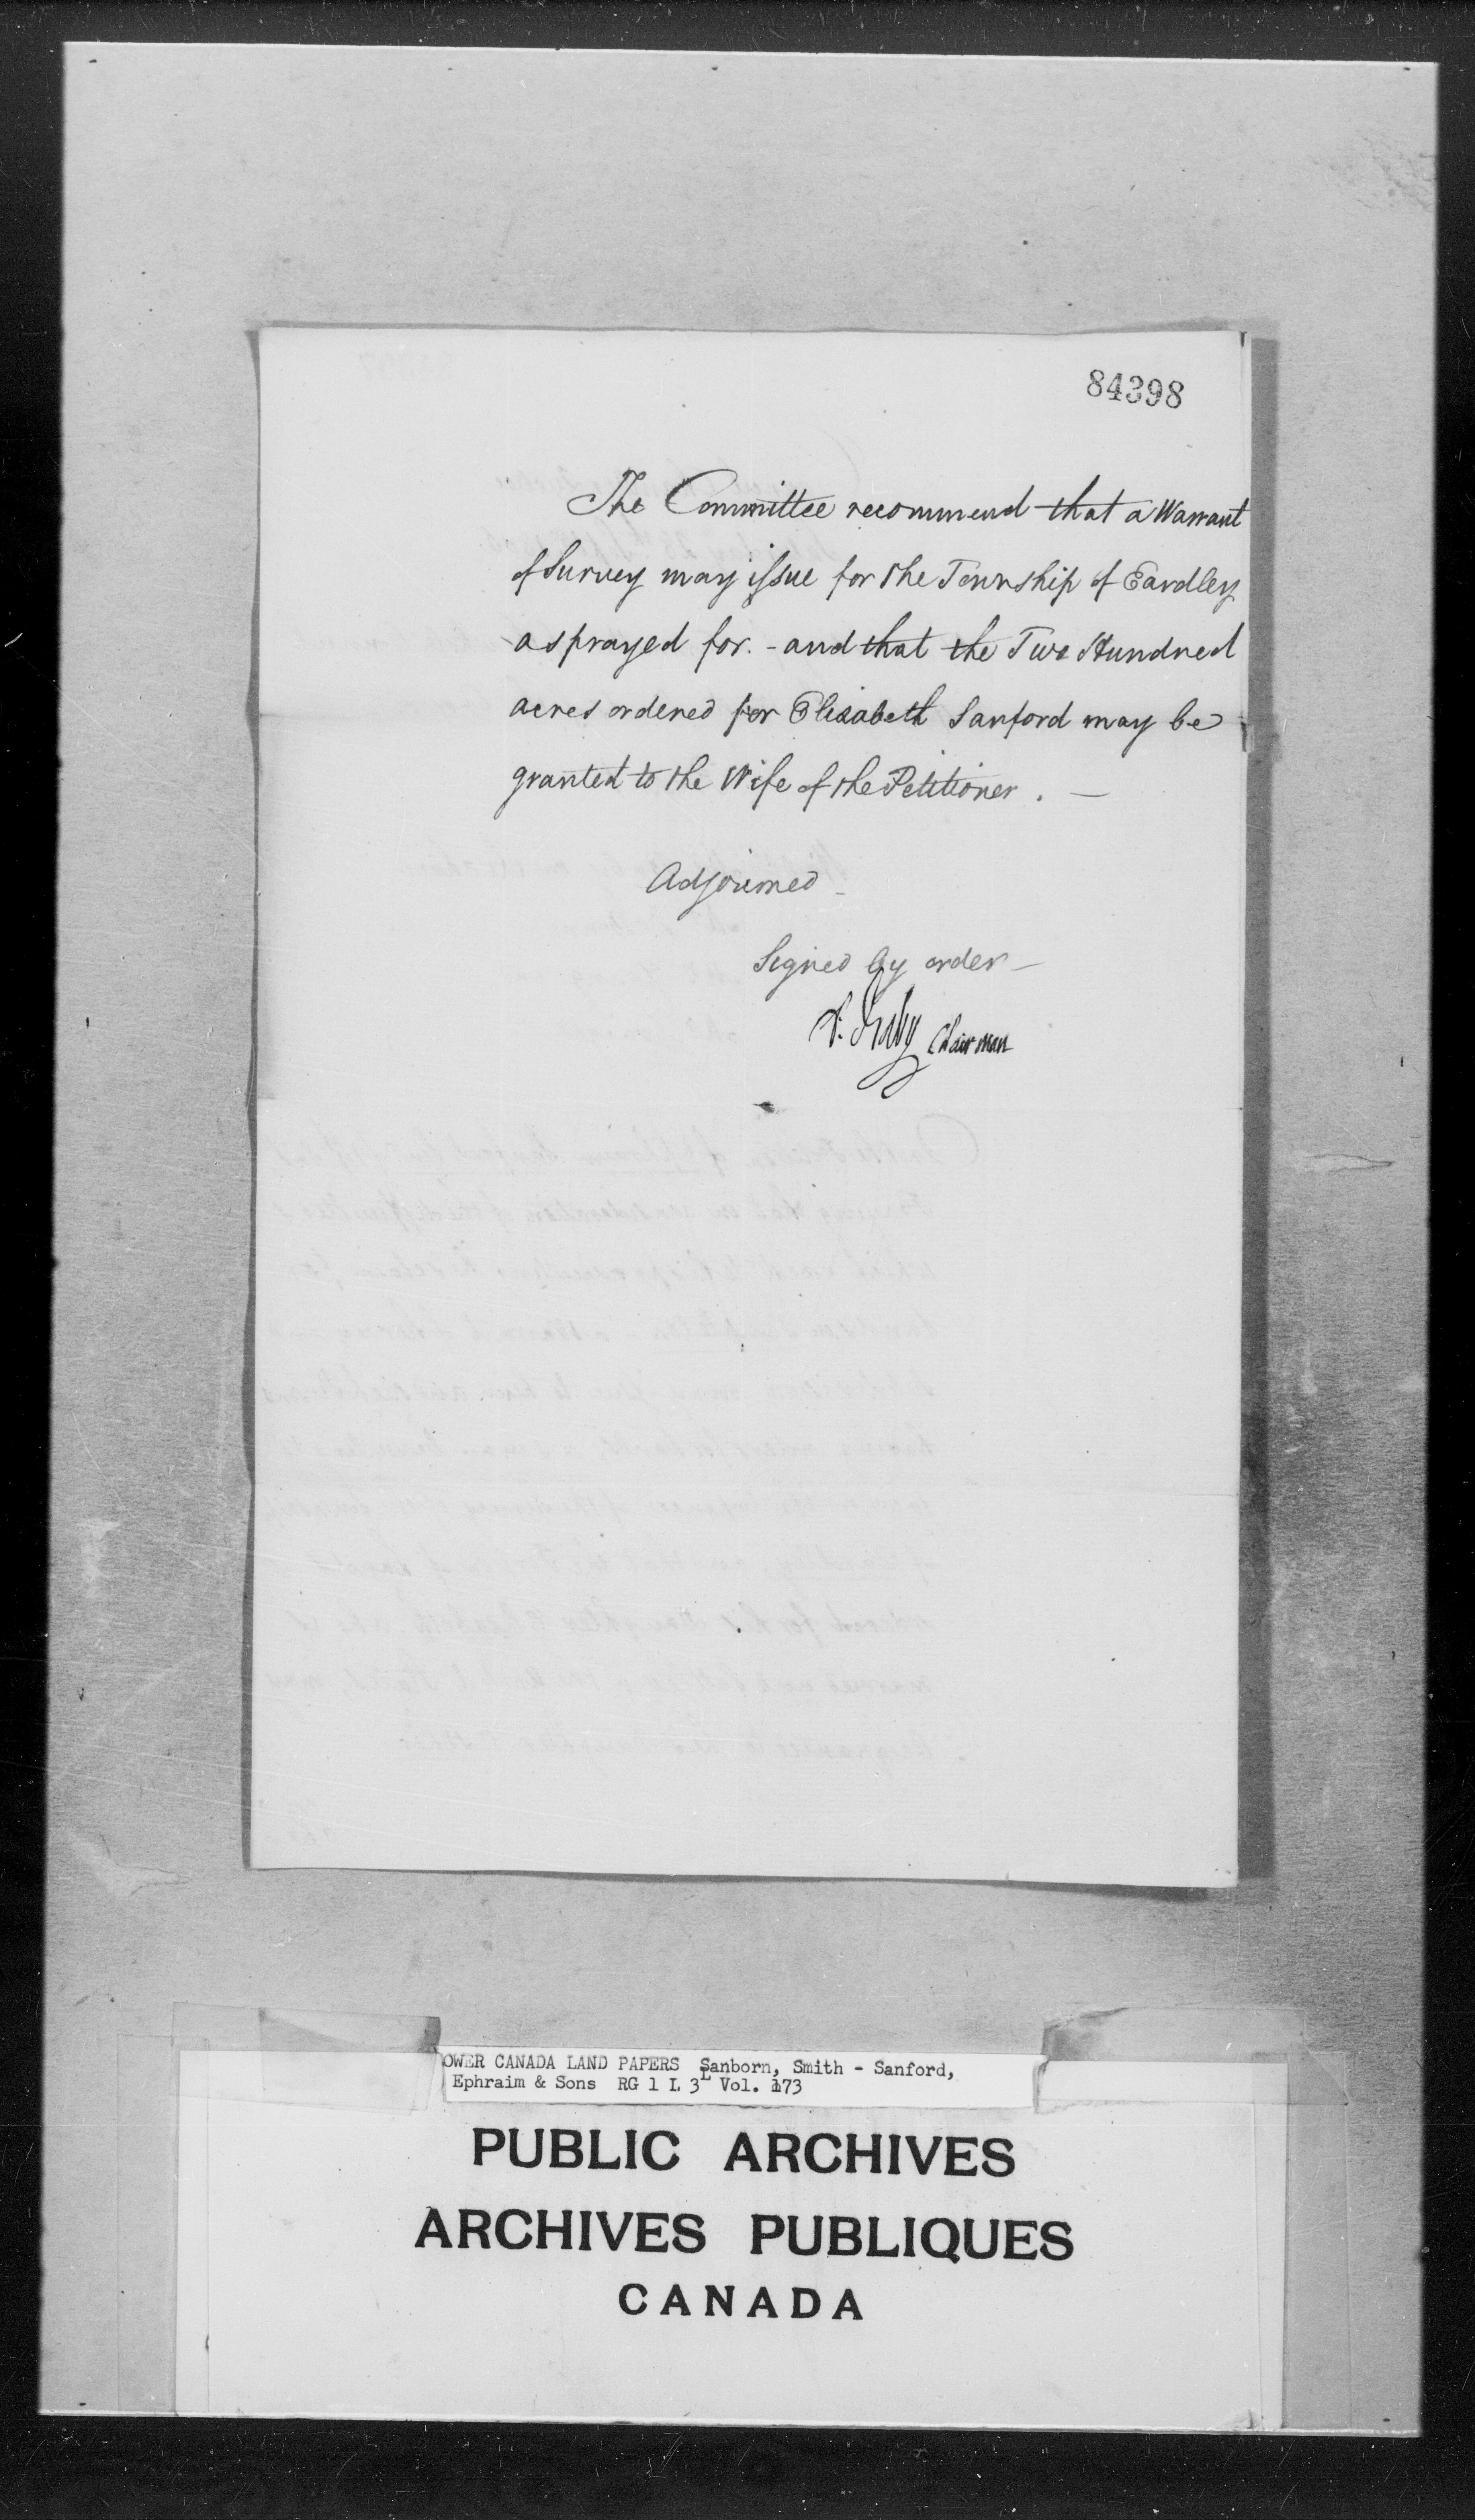 84398
The Committee recommend that a Warrant
of Survey may issue for the Township of Eardley
as prayed for. - and that the Two Hundred
acres ordered for Elisabeth Sanford may be
granted to the Wife of the Petitioner. —
Adjourned -
Signed by order -
Chairman
OWER CANADA LAND PAPERS Sanborn, Smith - Sanford,
Ephraim & Sons RG 1 L 3L Vol. 173
PUBLIC ARCHIVES
ARCHIVES PUBLIQUES
CANADA